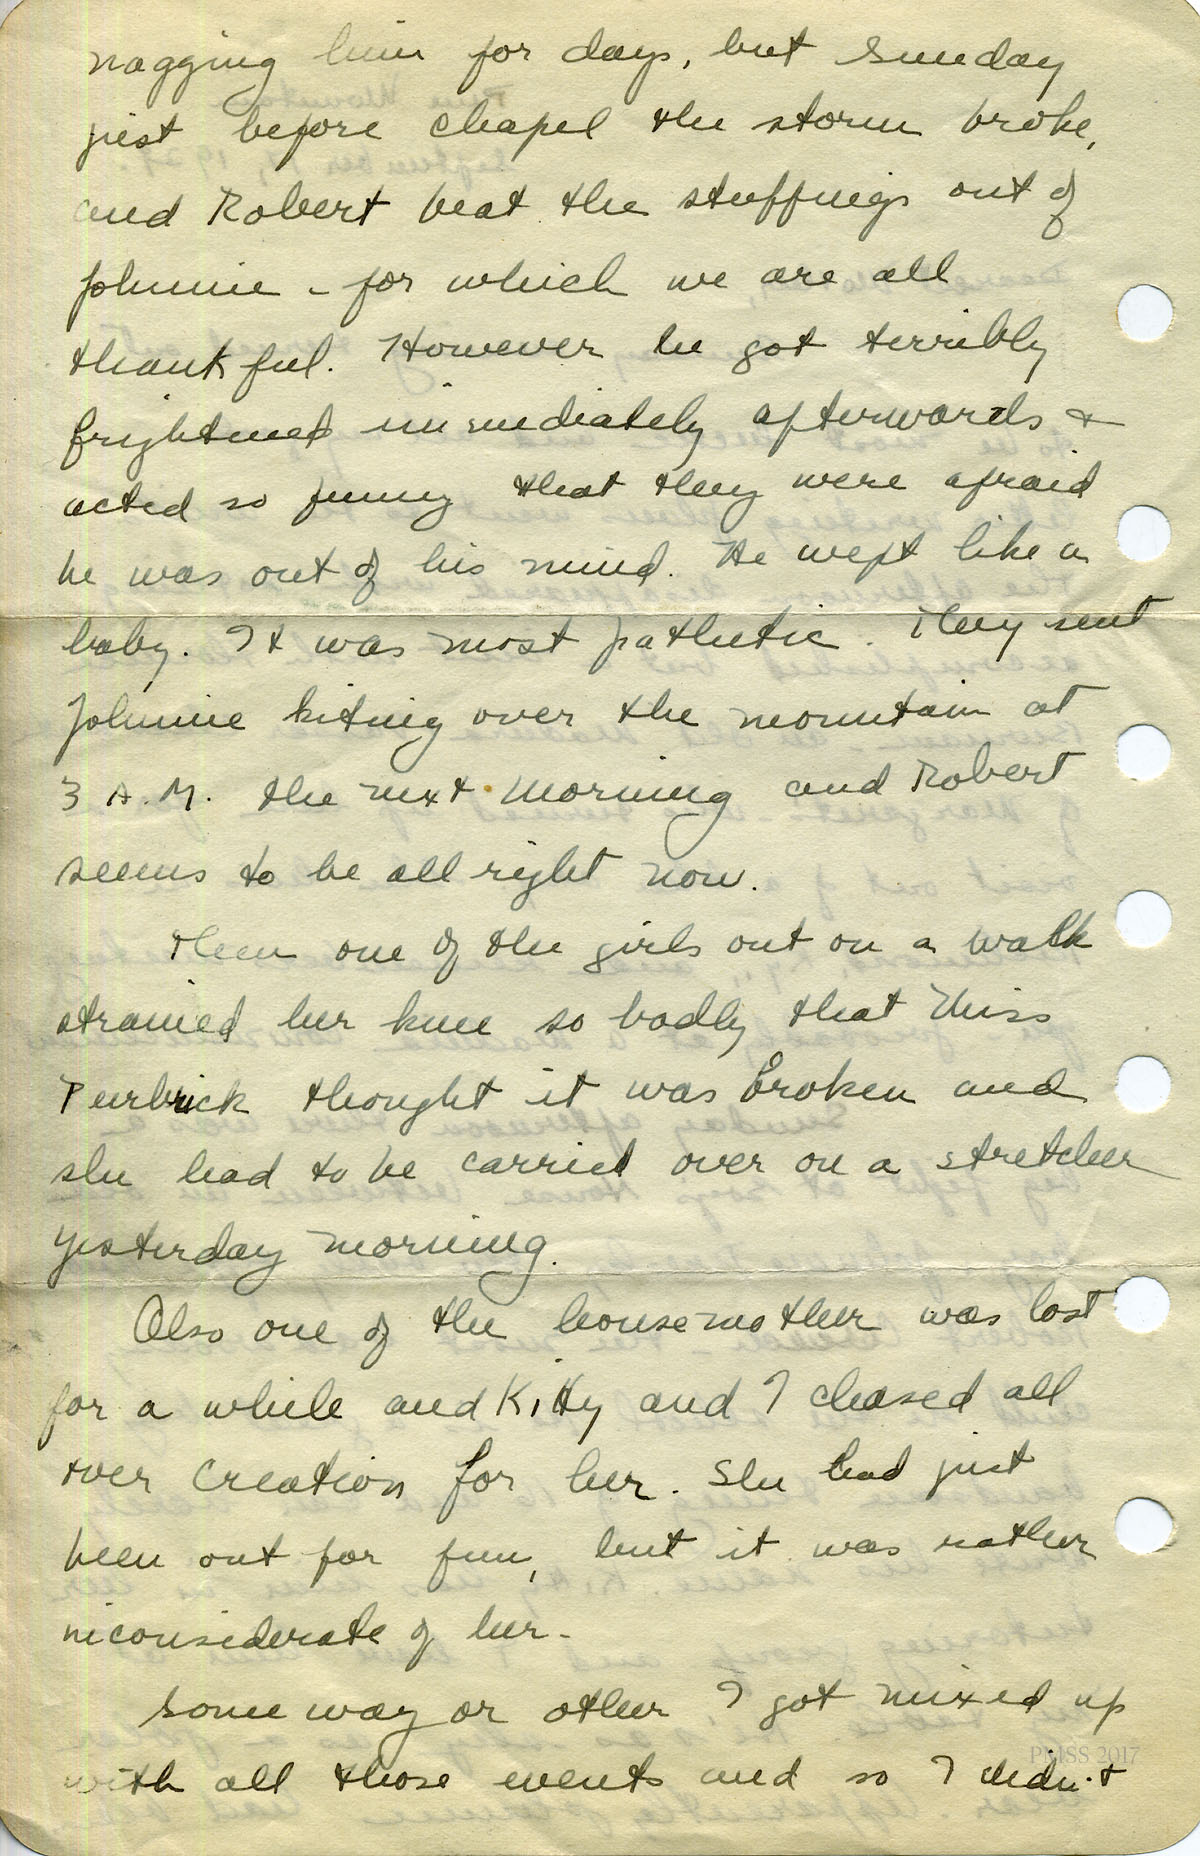 nagging him for days, but Sunday
just before chapel the storm broke,
and Robert beat the stuffings out of
Johnnie - for which we are all
thankful. However he got terribly
frightened immediately afterwards &
acted so funny that they were afraid
he was out of his mind. He wept like a
baby. It was most pathetic. They sent
Johnnie kiting over the mountain at
3 A.M. the next morning and Robert
seems to be all right now.
Then one of the girls out on a walk
strained her knee so badly that Miss
Purbrick thought it was broken and
she had to be carried over on a stretcher
yesterday morning.
Also one of the housemother was lost
for a while and Kitty and I chased all
over creation for her. She had just
been out for fun, but it was rather
inconsiderate of her -
Some way or other I got mixed up
with all those events and so I didn't
PMSS 2017